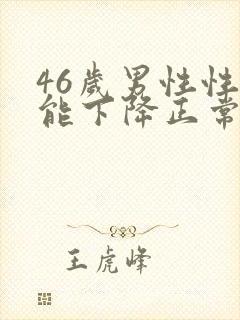 46岁男性性
能下降正常
王虎峰